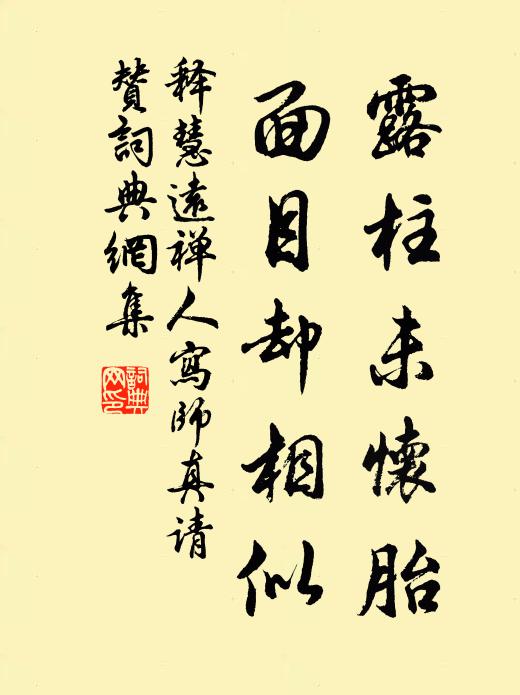 露柱未懷胎
面目却相似
释慧遠禅人寫師真请
赞詞典網集
詞典网印